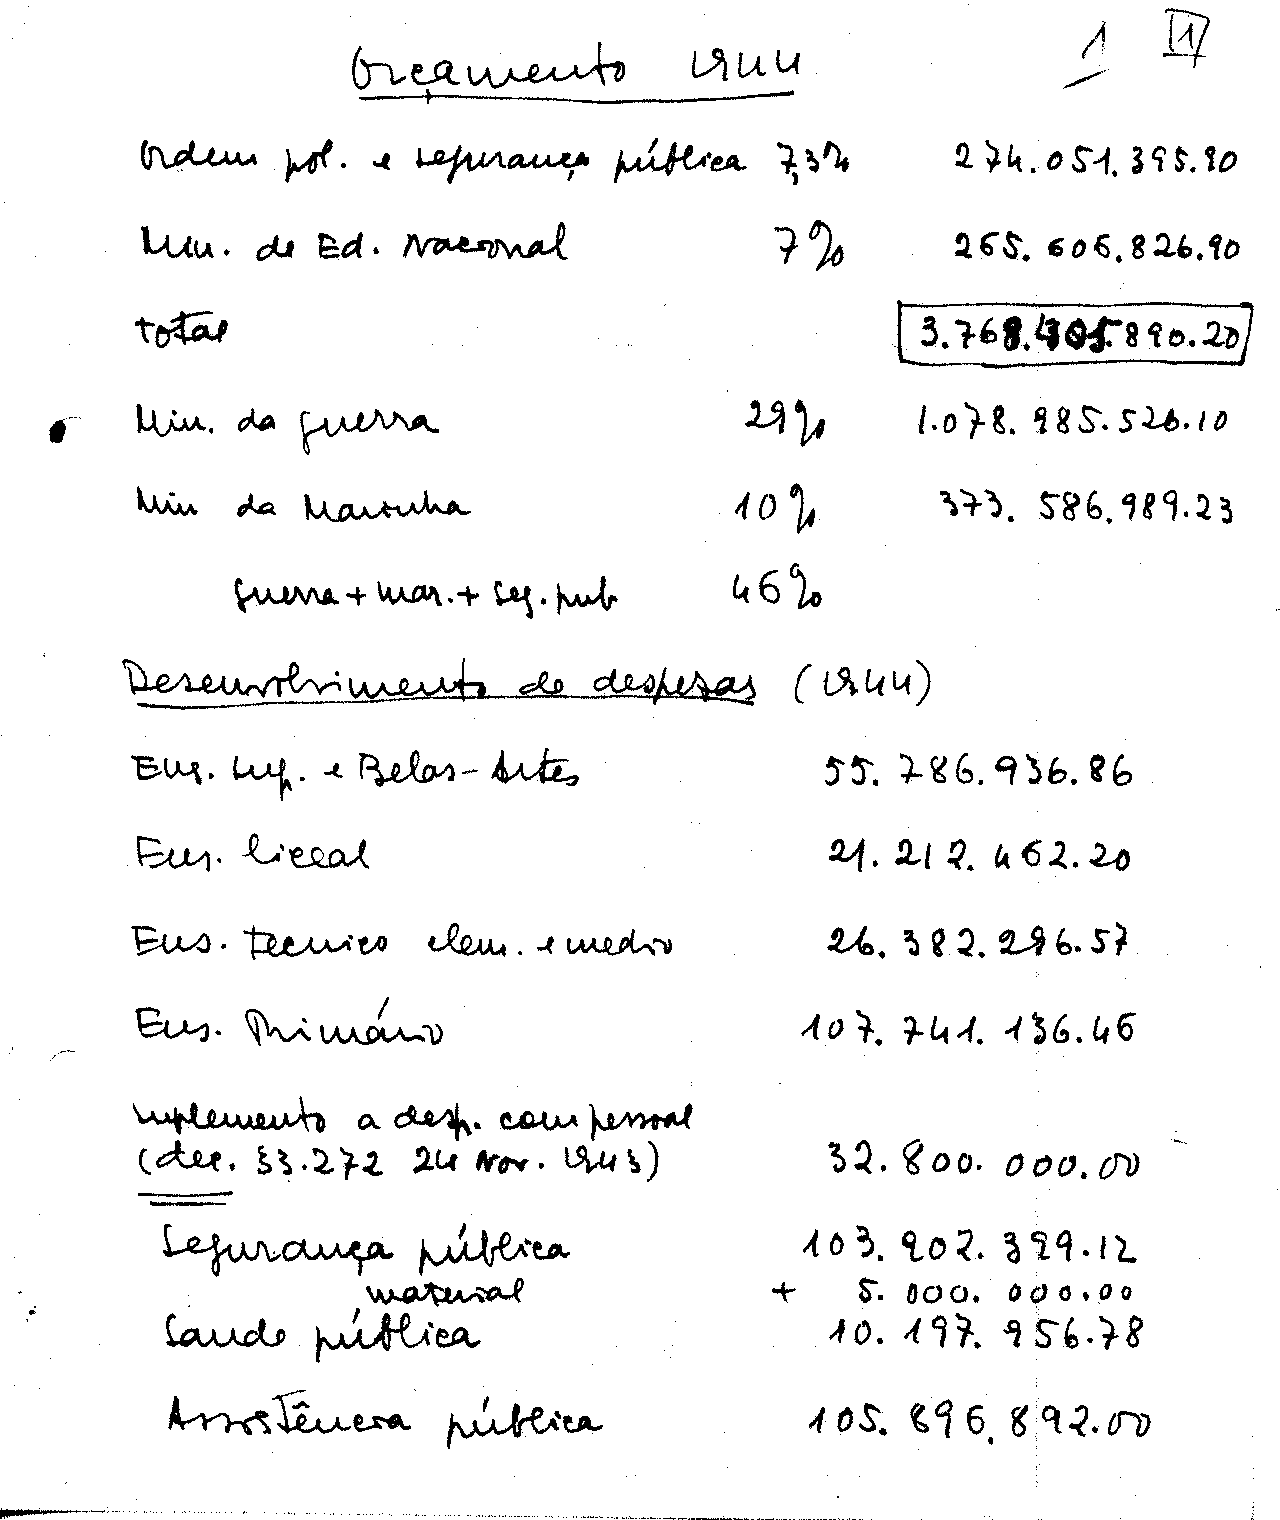 1 1
Orçamento 1944
Ordem pol. e segurança pública 7,3% 274.051.395.90
Min. de Ed. Nacional 7% 265.606.826.90
total 3.768.405.890.20
Min. da guerra 29% 1.078.985.526.10
Min da Marinha 10% 373.586.989.23
guerra + mar. + seg. pub 46%
Desenvolvimento de despezas (1944)
Ens. sup. e Belas-Artes 55.786.936.86
Ens. liceal 21.212.462.20
Ens. tecnico elem. e medio 26.382.296.57
Ens. Primário 107.741.136.46
suplemento a desp. com pessoal
(dec. 33.272 24 Nov. 1943) 32.800.000.00
Segurança pública 103.902.399.12
material + 5.000.000.00
Saude pública 10.197.956.78
Assistência pública 105.896.892.00